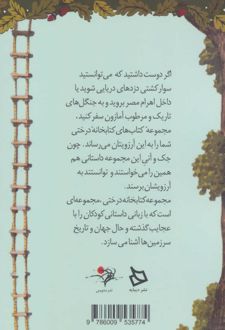 اگر دوست داشتید که می‌توانستید
سوار کشتی دزدهای دریایی شوید یا
داخل اهرام مصر بروید و به جنگل‌های
تاریک و مرطوب آمازون سفر کنید،
مجموعهٔ کتاب‌های کتابخانهٔ درختی
شما را به این آرزویتان می‌رساند. چون
جک و آنی این مجموعه داستانی هم
همین را می‌خواستند و توانستند به
آرزویشان برسند.
مجموعهٔ کتابخانه درختی، مجموعه‌ای
است که با زبانی داستانی کودکان را با
عجایب گذشته و حال جهان و تاریخ
سرزمین‌ها آشنا می سازد.
نشر دیبایه
9 786009 535774